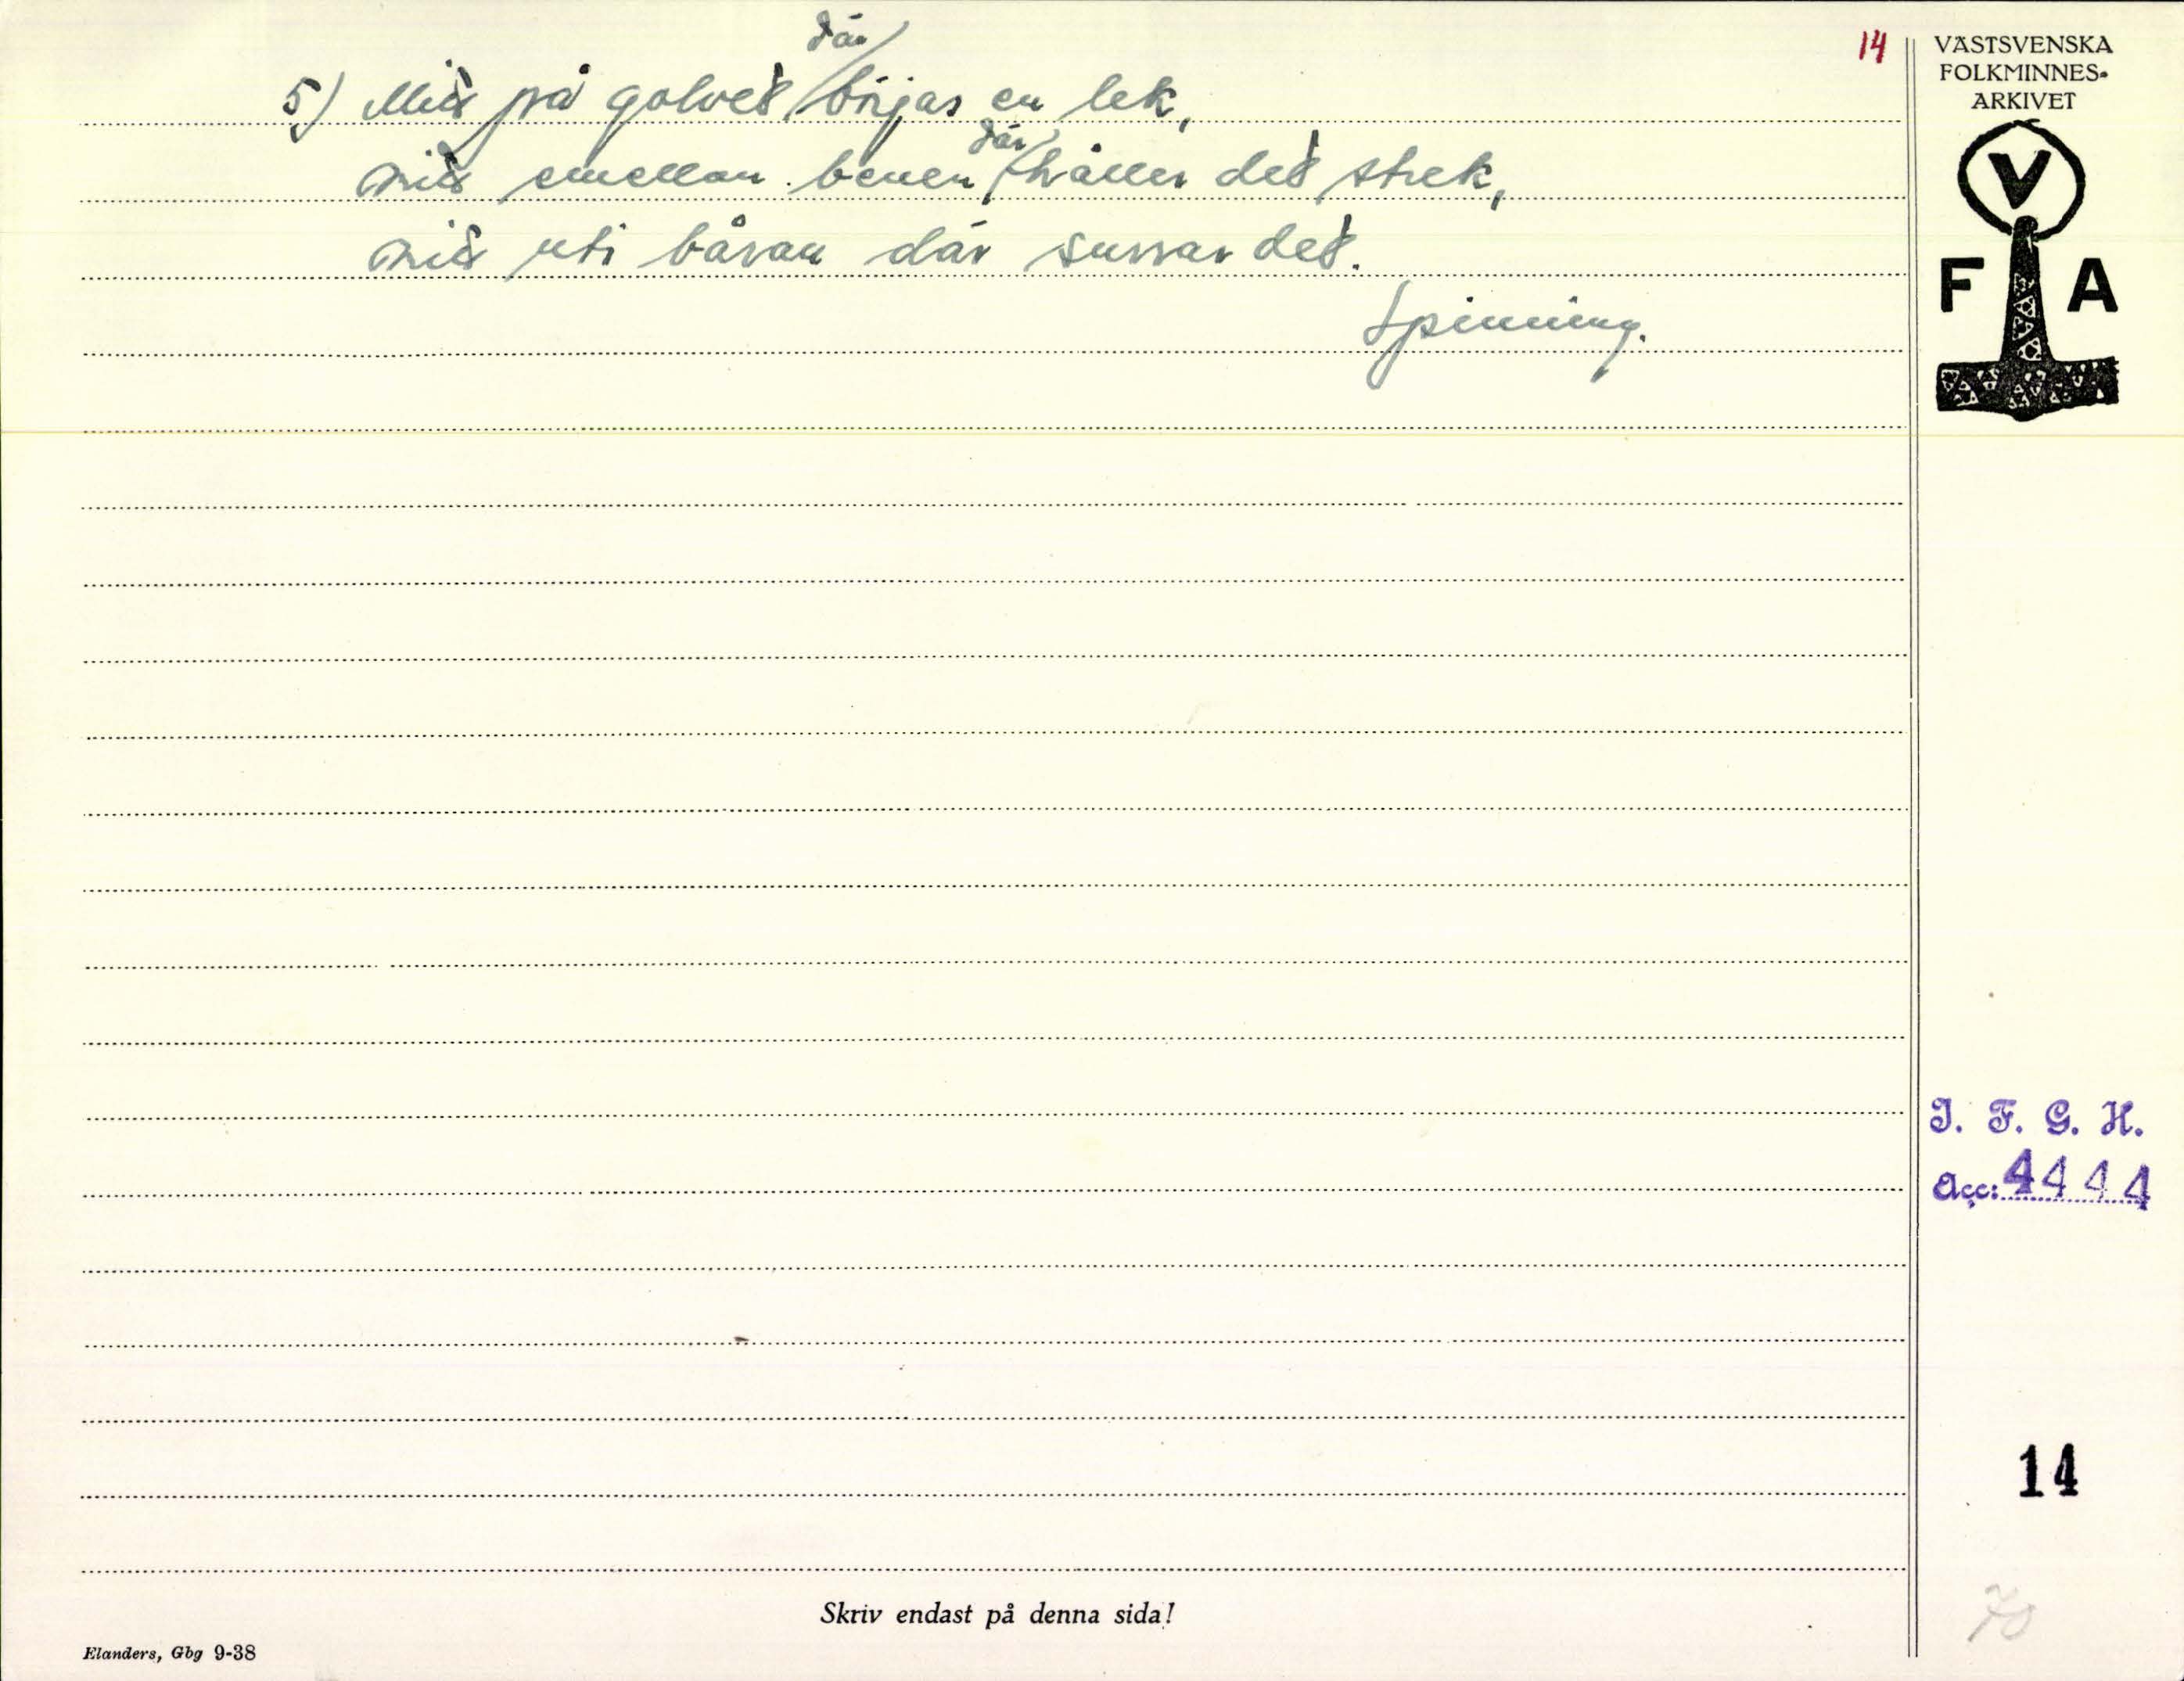 14
5) Mitt på golvet där börjas en lek,
mitt emellan benen där håller det strek,
mitt uti båran där surrar det.
Spinning.
VÄSTSVENSKA
FOLKMINNES-
ARKIVET
V
F A
I. F. G. H.
Acc: 4444
14
70
Skriv endast på denna sida!
Elanders, Gbg 9-38